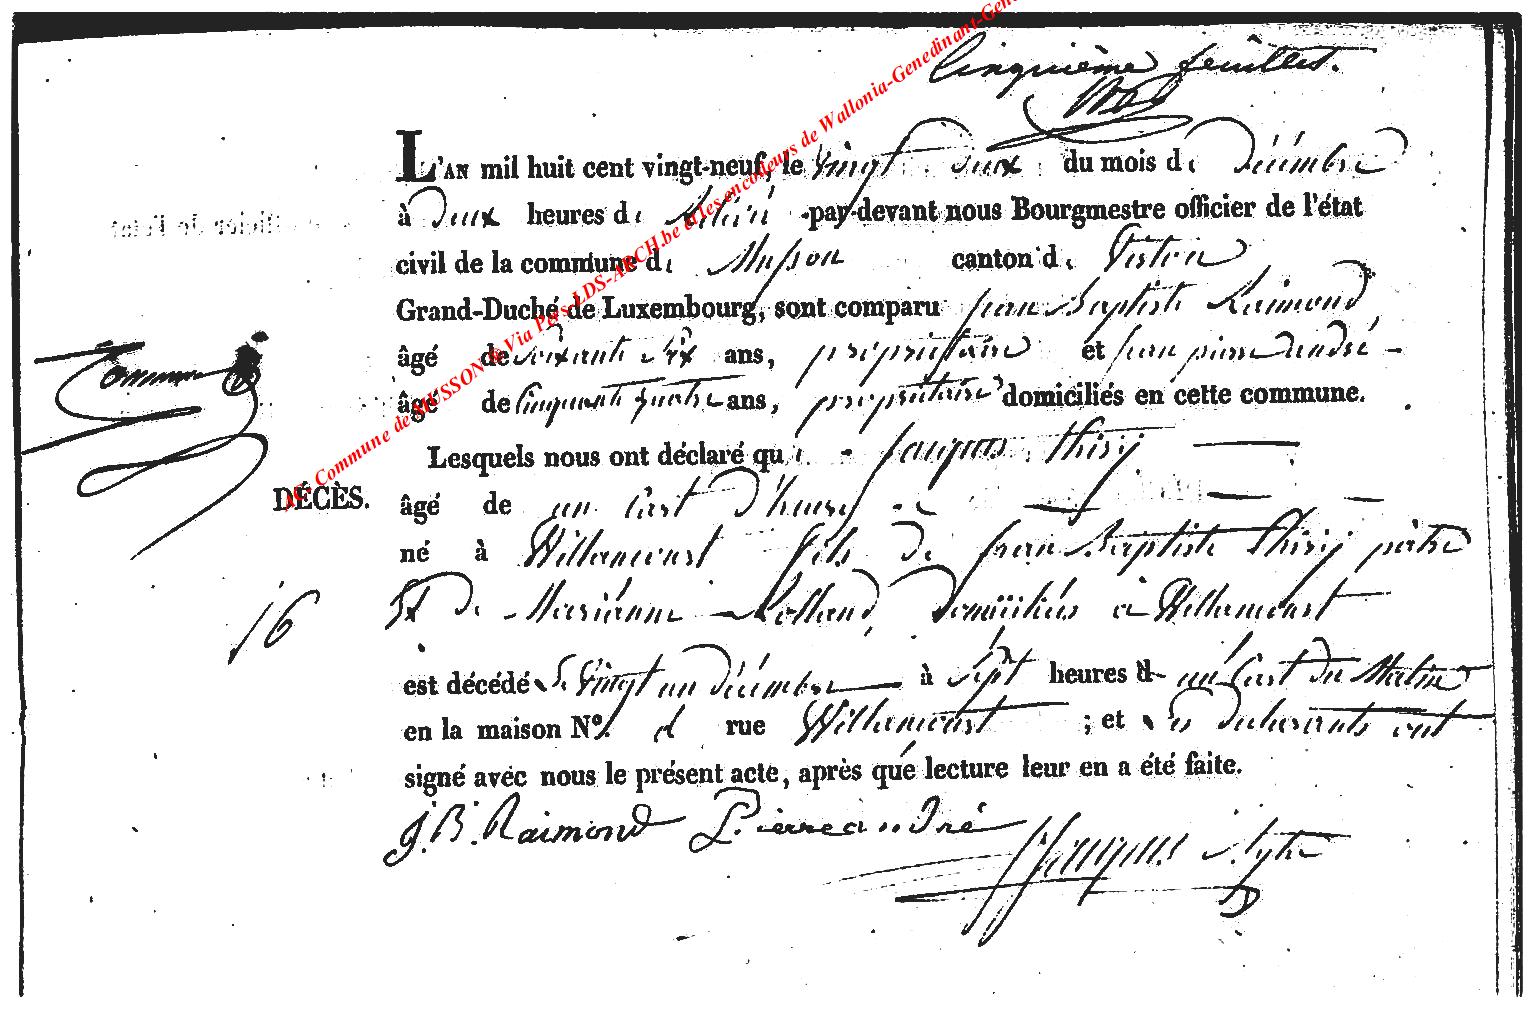 Cinquième feuillet.
L'AN mil huit cent vingt-neuf, le vingt deux du mois de décembre
à Deux heures de Relevé par-devant nous Bourgmestre officier de l'état
civil de la commune de Musson canton de Virton
Grand-Duché de Luxembourg, sont comparu Jean Baptiste Raimond
âgé de soixante six ans, propriétaire et jean pierre andré
âgé de Cinquante quatre ans, propriétaire domiciliés en cette commune.
Lesquels nous ont déclaré que Jacques Thiry
DÉCÈS.
âgé de un cart d'heure
né à Willancourt fils de Jean Baptiste Thiry pâtre
16
Et de Marianne Rolland, domiciliés à Willancourt
est décédé le vingt un décembre à Sept heures d un cart du Matin
en la maison Nº. rue Willancourt ; et les déclarants ont
signé avec nous le présent acte, après que lecture leur en a été faite.
J. B. Raimond Pierre andré
Jacques
AG- Commune de MUSSON & Via Pers-LDS-ARCH.be et les encodeurs de Wallonia-Genedinant-Gen